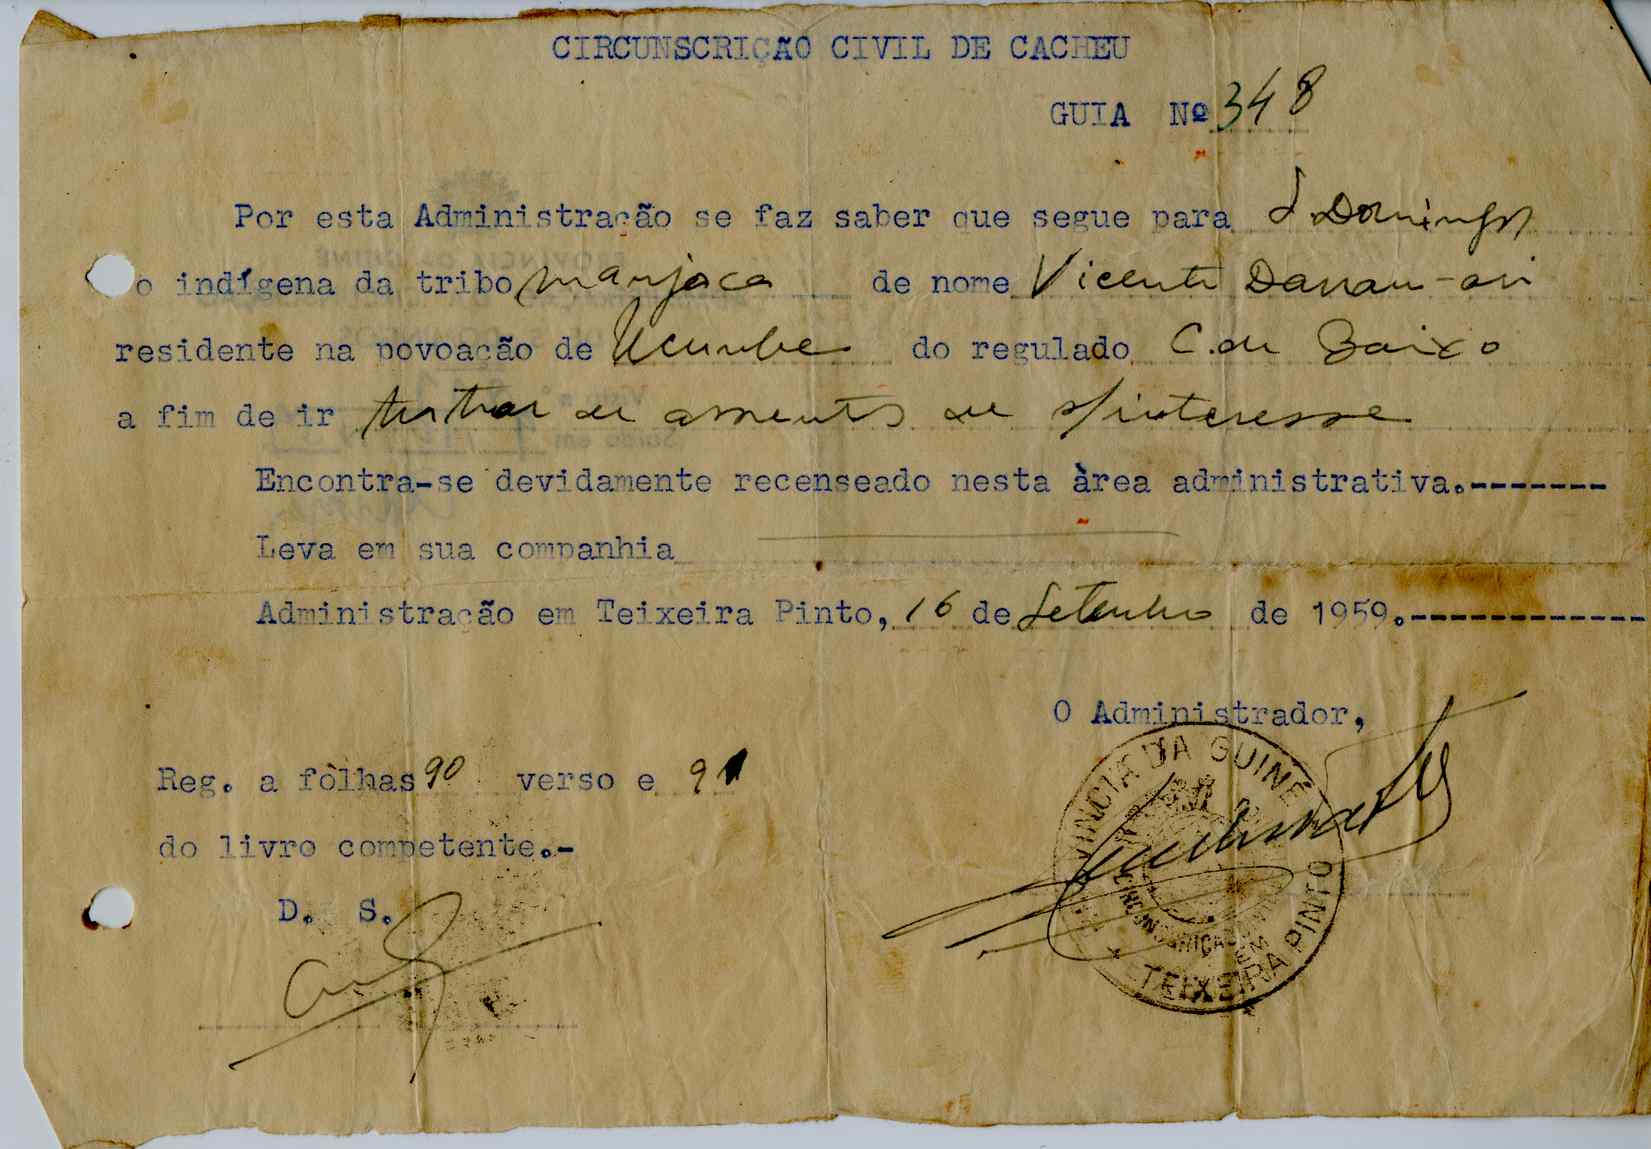 CIRCUNSCRIÇÃO CIVIL DE CACHEU
GUIA Nº 348
Por esta Administração se faz saber que segue para S. Domingos
o indígena da tribo manjaca de nome Vicente
residente na povoação de do regulado C. de Baixo
a fim de ir tratar de assuntos de s/interesse
Encontra-se devidamente recenseado nesta àrea administrativa.-------
Leva em sua companhia
Administração em Teixeira Pinto, 16 de Setembro de 1959.------------
O Administrador,
Reg. a fôlhas 90 verso e 91
do livro competente.-
D. S.
PROVINCIA DA GUINÉ
TEIXEIRA PINTO